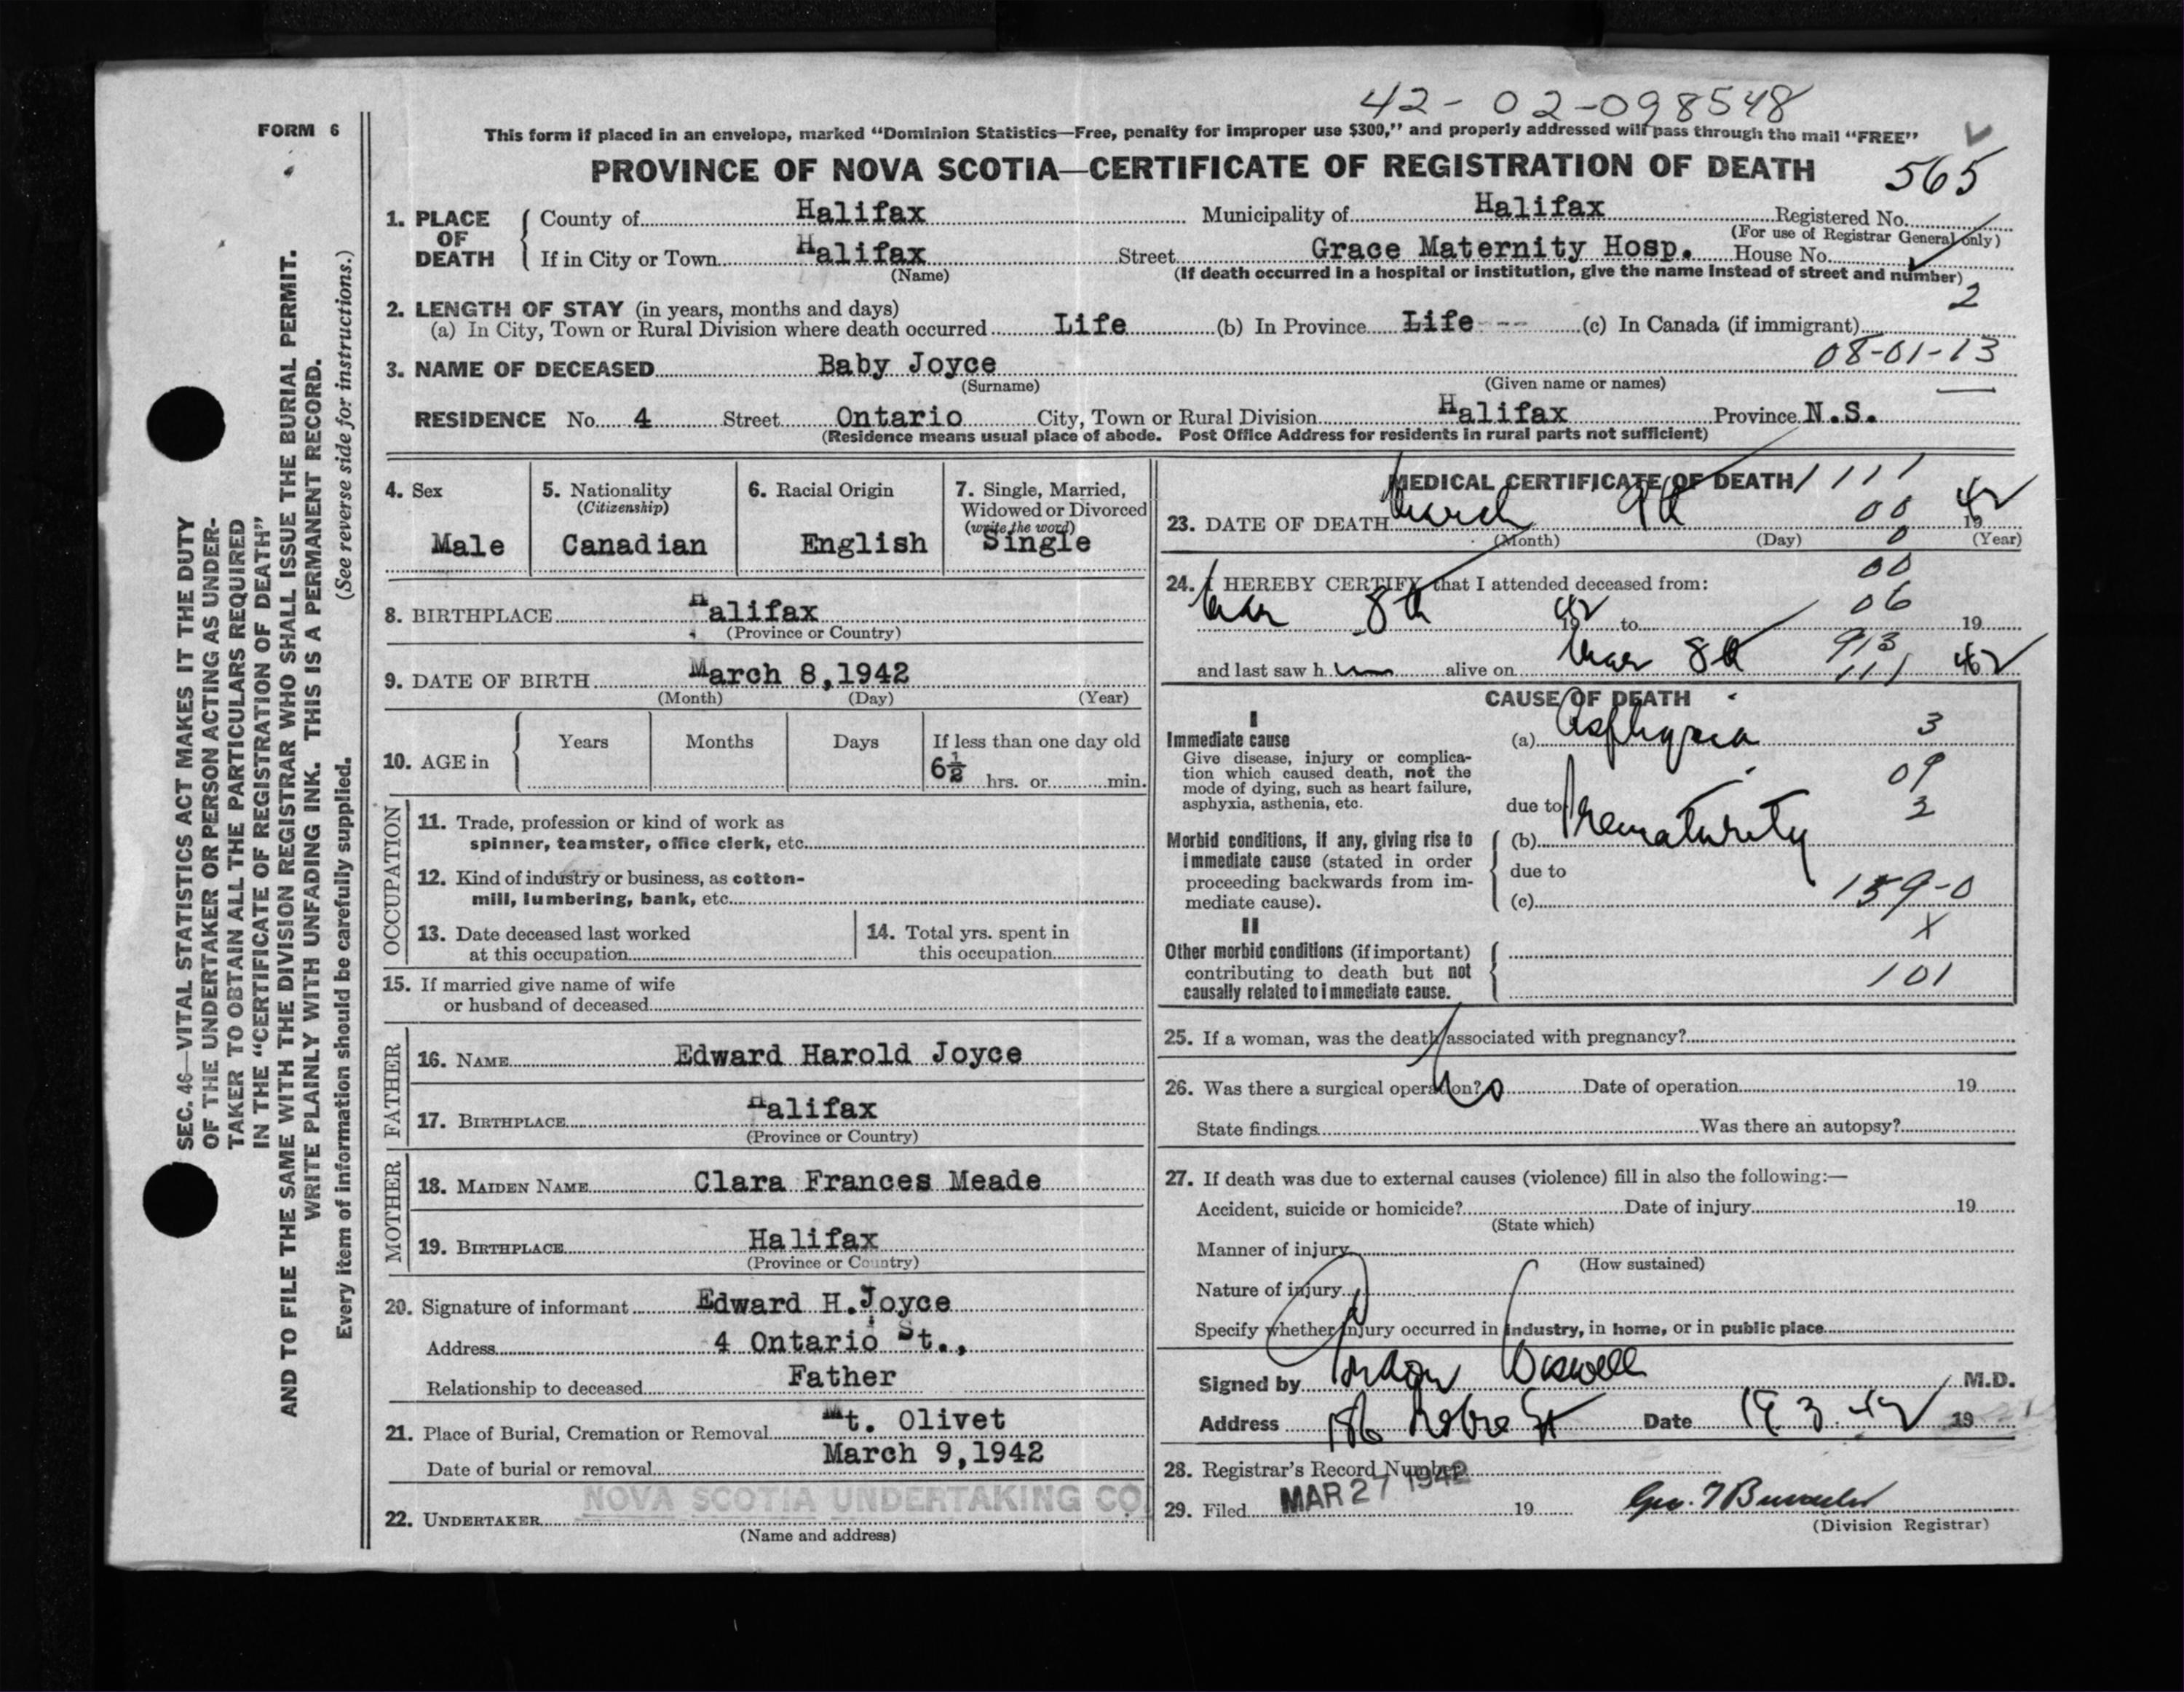 42-02-098548
FORM 6
This form if placed in an envelope, marked "Dominion Statistics—Free, penalty for improper use $300," and properly addressed will pass through the mail "FREE"
PROVINCE OF NOVA SCOTIA—CERTIFICATE OF REGISTRATION OF DEATH
565
1. PLACE OF DEATH
County of Halifax Municipality of Halifax Registered No.
(For use of Registrar General only)
If in City or Town Halifax Street Grace Maternity Hosp. House No.
(Name) (If death occurred in a hospital or institution, give the name instead of street and number)
2
2. LENGTH OF STAY (in years, months and days)
(a) In City, Town or Rural Division where death occurred Life (b) In Province Life --- (c) In Canada (if immigrant)
08-01-13
3. NAME OF DECEASED Baby Joyce
(Surname) (Given name or names)
RESIDENCE No. 4 Street Ontario City, Town or Rural Division Halifax Province N.S.
(Residence means usual place of abode. Post Office Address for residents in rural parts not sufficient)
4. Sex
Male
5. Nationality
(Citizenship)
Canadian
6. Racial Origin
English
7. Single, Married,
Widowed or Divorced
(write the word)
Single
8. BIRTHPLACE Halifax
(Province or Country)
9. DATE OF BIRTH March 8,1942
(Month) (Day) (Year)
10. AGE in
Years Months Days If less than one day old
6½ hrs. or min.
OCCUPATION
11. Trade, profession or kind of work as
spinner, teamster, office clerk, etc.
12. Kind of industry or business, as cotton-
mill, lumbering, bank, etc.
13. Date deceased last worked
at this occupation
14. Total yrs. spent in
this occupation
15. If married give name of wife
or husband of deceased
FATHER
16. NAME Edward Harold Joyce
17. BIRTHPLACE Halifax
(Province or Country)
MOTHER
18. MAIDEN NAME Clara Frances Meade
19. BIRTHPLACE Halifax
(Province or Country)
20. Signature of informant Edward H. Joyce
Address 4 Ontario St.,
Relationship to deceased Father
21. Place of Burial, Cremation or Removal Mt. Olivet
Date of burial or removal March 9,1942
22. UNDERTAKER NOVA SCOTIA UNDERTAKING CO.
(Name and address)
MEDICAL CERTIFICATE OF DEATH
1111
23. DATE OF DEATH March 9th 00 1942
(Month) (Day) 0 (Year)
24. I HEREBY CERTIFY that I attended deceased from:
00
Mar 8th 1942 to 06 19
and last saw h im alive on Mar 8th 913 1942
111
CAUSE OF DEATH
I
Immediate cause
Give disease, injury or complica-
tion which caused death, not the
mode of dying, such as heart failure,
asphyxia, asthenia, etc.
(a) Asphyxia 3
09
due to 2
Morbid conditions, if any, giving rise to
immediate cause (stated in order
proceeding backwards from im-
mediate cause).
(b) Prematurity
due to
(c) 159-0
X
II
Other morbid conditions (if important)
contributing to death but not
causally related to immediate cause.
101
25. If a woman, was the death associated with pregnancy?
26. Was there a surgical operation? No Date of operation 19
State findings Was there an autopsy?
27. If death was due to external causes (violence) fill in also the following:—
Accident, suicide or homicide? Date of injury 19
(State which)
Manner of injury
(How sustained)
Nature of injury
Specify whether injury occurred in industry, in home, or in public place
Signed by Gordon Wiswell M.D.
Address 186 Robie St Date 19 3 42 19
28. Registrar's Record Number
29. Filed MAR 27 1942 19
(Division Registrar)
SEC. 46—VITAL STATISTICS ACT MAKES IT THE DUTY
OF THE UNDERTAKER OR PERSON ACTING AS UNDER-
TAKER TO OBTAIN ALL THE PARTICULARS REQUIRED
IN THE "CERTIFICATE OF REGISTRATION OF DEATH"
AND TO FILE THE SAME WITH THE DIVISION REGISTRAR WHO SHALL ISSUE THE BURIAL PERMIT.
WRITE PLAINLY WITH UNFADING INK. THIS IS A PERMANENT RECORD.
Every item of information should be carefully supplied. (See reverse side for instructions.)